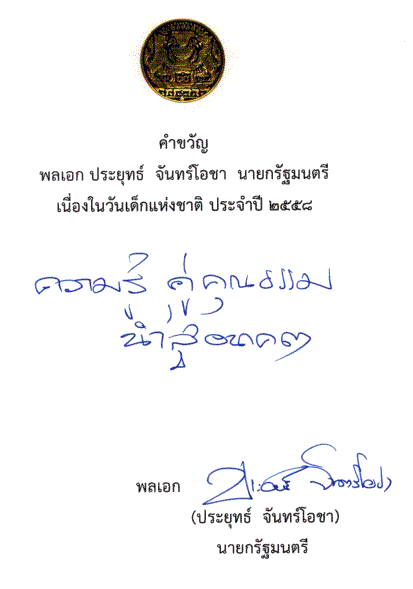 คำขวัญ
พลเอก ประยุทธ์ จันทร์โอชา นายกรัฐมนตรี
เนื่องในวันเด็กแห่งชาติ ประจำปี ๒๕๕๘
ความรู้ คู่คุณธรรม
นำสู่อนาคต
พลเอก
(ประยุทธ์ จันทร์โอชา)
นายกรัฐมนตรี